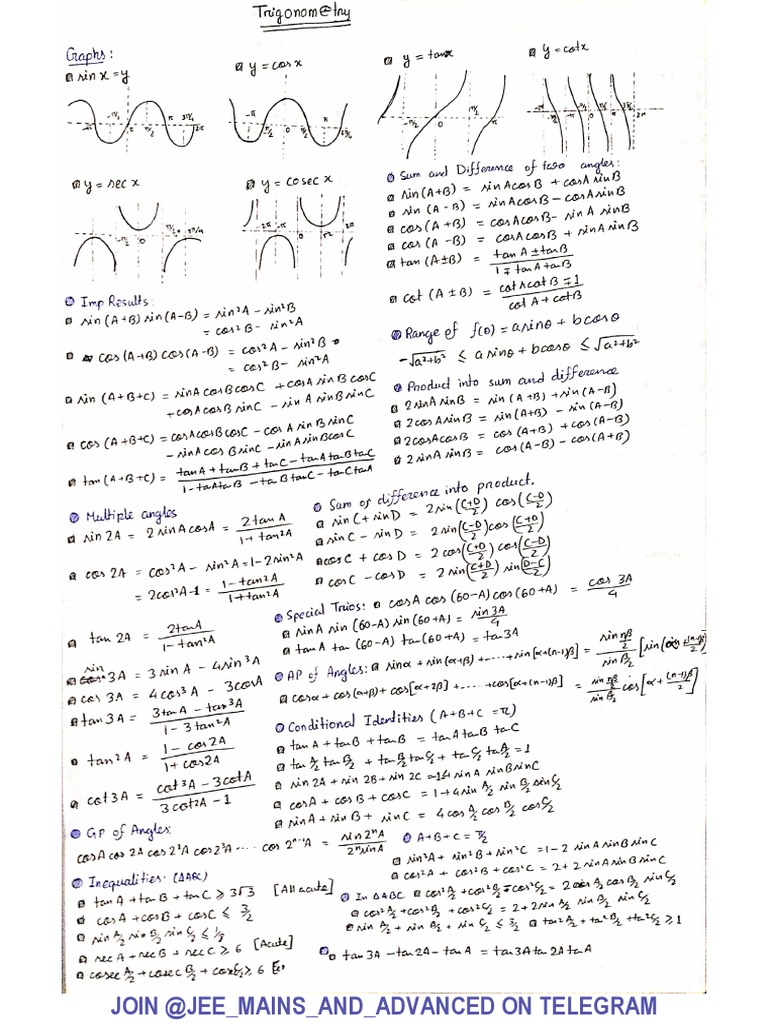 Trigonometry
Graphs:
sin x = y
y = cos x
y = tanx
y = cotx
y = sec x
y = cosec x
Sum and Difference of two angles:
sin(A+B) = sinAcosB + cosAsinB
sin (A-B) = sinAcosB - cosAsinB
cos (A+B) = cosAcosB - sinA sinB
cos (A-B) = cosAcosB + sinAsinB
tan (A±B) = tanA ± tanB / 1∓tanAtanB
cot (A±B) = cotAcotB ∓1 / cotA + cotB
Imp Results:
sin (A+B) sin(A-B) = sin²A - sin²B
= cos²B - sin²A
cos (A+B) cos (A-B) = cos²A - sin²B
= cos²B - sin²A
sin (A+B+C) = sinAcosBcosC + cosAsinBcosC
+cosAcosBsinC - sinAsinBsinC
cos (A+B+C) = cosAcosBcosC - cosAsinBsinC
- sinAcosBsinC - sinAsinBcosC
tan (A+B+C) = tanA + tanB + tanC - tanAtanBtanC / 1-tanAtanB - tanBtanC - tanCtanA
Range of f(θ) = asinθ + bcosθ
-√a²+b² ≤ asinθ + bcosθ ≤ √a²+b²
Product into sum and difference
2sinAsinB = sin(A+B) + sin(A-B)
2cosAsinB = sin(A+B) - sin(A-B)
2cosAcosB = cos(A+B) + cos(A-B)
2sinAsinB = cos(A-B) - cos(A+B)
Multiple angles
sin 2A = 2sinAcosA = 2tanA / 1+tan²A
cos 2A = cos²A - sin²A = 1-2sin²A
= 2cos²A-1 = 1-tan²A / 1+tan²A
tan 2A = 2tanA / 1-tan²A
sin 3A = 3sinA - 4sin³A
cos 3A = 4cos³A - 3cosA
tan 3A = 3tanA - tan³A / 1-3tan²A
tan²A = 1-cos2A / 1+cos2A
cot3A = cot³A - 3cotA / 3cot²A-1
Sum or difference into product.
sinC + sinD = 2sin(C+D/2) cos(C-D/2)
sinC - sinD = 2sin(C-D/2)cos(C+D/2)
cosC + cosD = 2cos(C+D/2)cos(C-D/2)
cosC - cosD = 2sin(C+D/2)sin(D-C/2)
Special Trios: cosA cos(60-A)cos(60+A) = cos 3A / 4
sinA sin(60-A)sin(60+A) = sin3A / 4
tanA tan(60-A) tan(60+A) = tan3A
AP of Angles: sinα + sin(α+β) + ..... + sin[α+(n-1)β] = sin nβ/2 / sin β/2
cosα + cos(α+β) + cos[α+2β] + ..... + cos[α+(n-1)β] = sin nβ/2 / sin β/2 cos[α + (n-1)β/2]
Conditional Identities (A+B+C = π)
tanA + tanB + tanB = tanAtanBtanC
tanA/2tanB/2 + tanB/2tanC/2 + tanC/2tanA/2 = 1
sin 2A + sin 2B + sin 2C = 4sinAsinBsinC
cosA + cosB + cosC = 1+4sinA/2 sinB/2 sinC/2
sinA + sinB + sinC = 4cosA/2 cosB/2 cosC/2
GP of Angles:
cosA cos 2A cos 2²A cos 2³A .... cos 2ⁿ⁻¹A = sin2ⁿA / 2ⁿsinA
A+B+C = π/2
sin²A + sin²B + sin²C = 1-2 sinAsinBsinC
cos²A + cos²B + cos²C = 2+2sinAsinBsinC
Inequalities: (ΔABC)
tanA + tanB + tanC ≥ 3√3 [All acute]
cosA + cosB + cosC ≤ 3/2
sinA/2 sinB/2 sinC/2 ≤ 1/8
secA + secB + secC ≥ 6 [Acute]
cosecA/2 + cosecB/2 + cosecC/2 ≥ 6
In ΔABC cos²A/2 + cos²B/2 - cos²C/2 = 2cosA/2 cosB/2 sinC/2
cos²A/2 + cos²B/2 + cos²C/2 = 2+2sinA/2 sinB/2 sinC/2
sinA/2 + sinB/2 + sinC/2 ≤ 3/2 tan²A/2 + tan²B/2 + tan²C/2 ≥ 1
tan3A - tan2A - tanA = tan3Atan2AtanA
JOIN @JEE_MAINS_AND_ADVANCED ON TELEGRAM